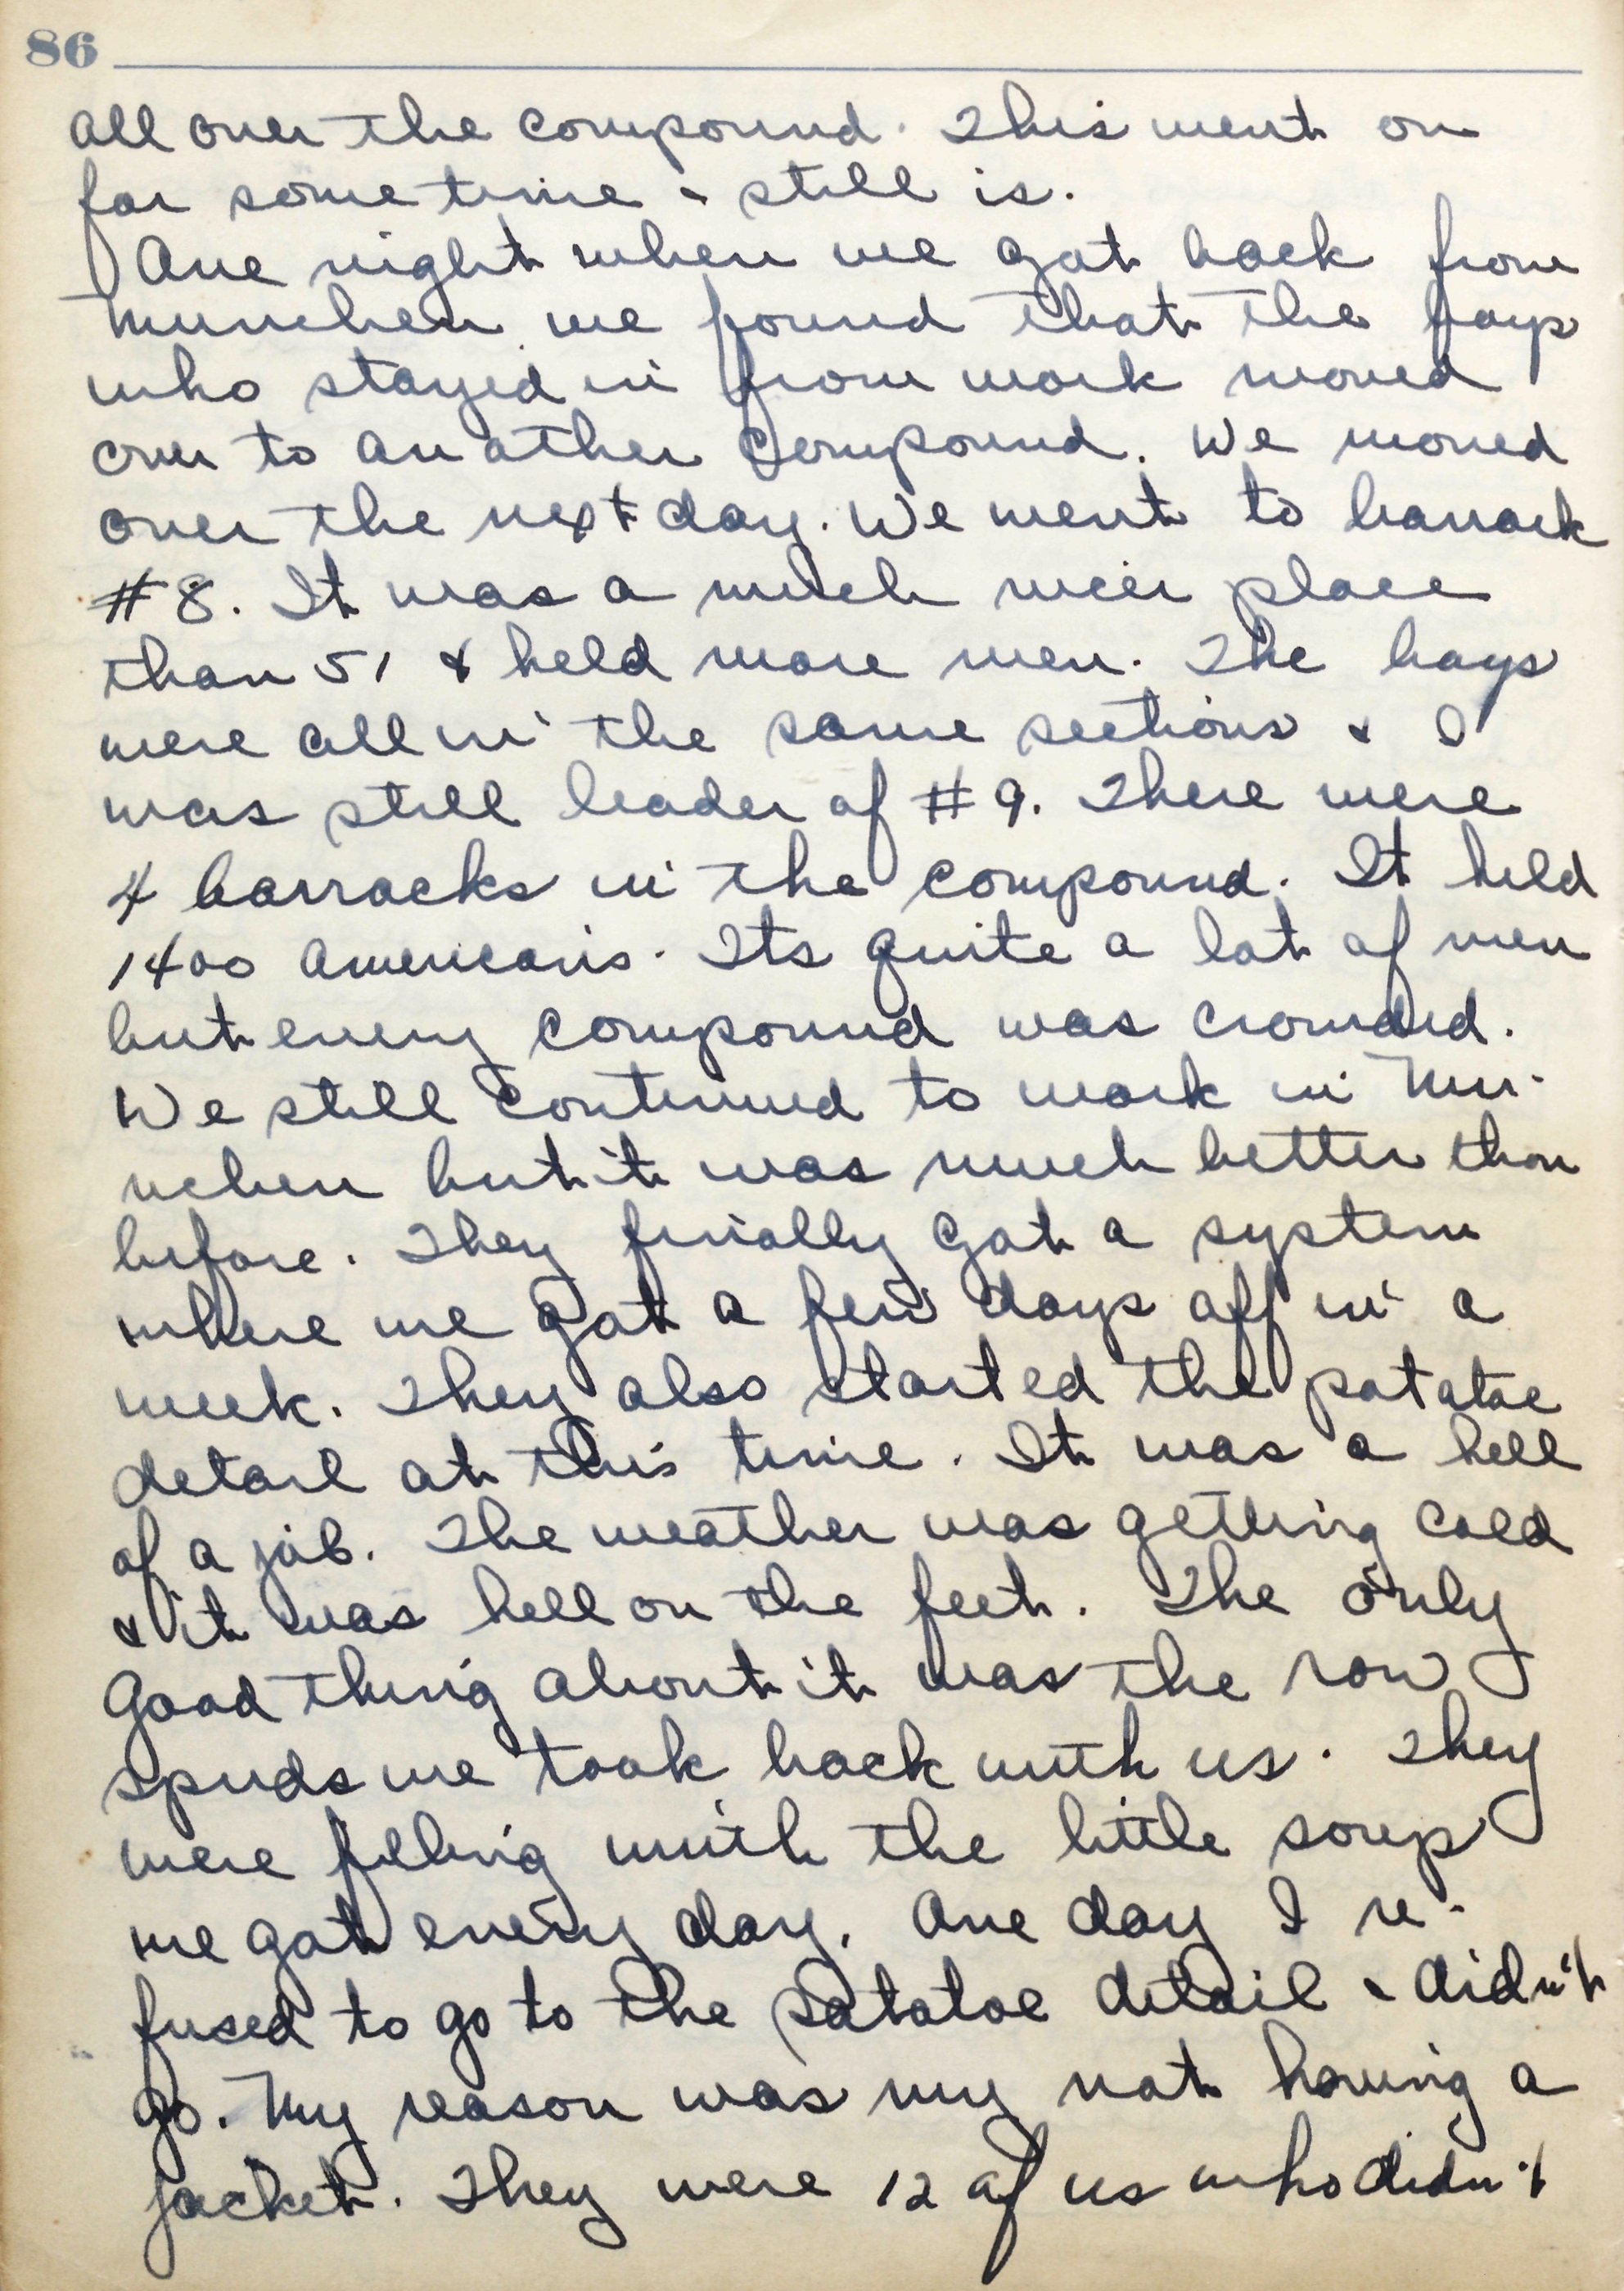 86
all over the compound. This went on
for some time & still is.
One night when we got back from
Munchen we found that the boys
who stayed in from work moved
over to another compound. We moved
over the next day. We went to barrack
#8. It was a much nicer place
than 51 & held more men. The boys
were all in the same sections & I
was still leader of #9. There were
4 barracks in the compound. It held
1400 Americans. Its quite a lot of men
but every compound was crowded.
We still continued to work in Mu-
nchen but it was much better than
before. They finally got a system
where we got a few days off in a
week. They also started the potatoe
detail at this time. It was a hell
of a job. The weather was getting cold
& it was hell on the feet. The only
good thing about it was the raw
spuds we took back with us. They
were filling with the little soup
we got every day. One day I re-
fused to go to the potatoe detail & didn't
go. My reason was my not having a
jacket. They were 12 of us who didn't